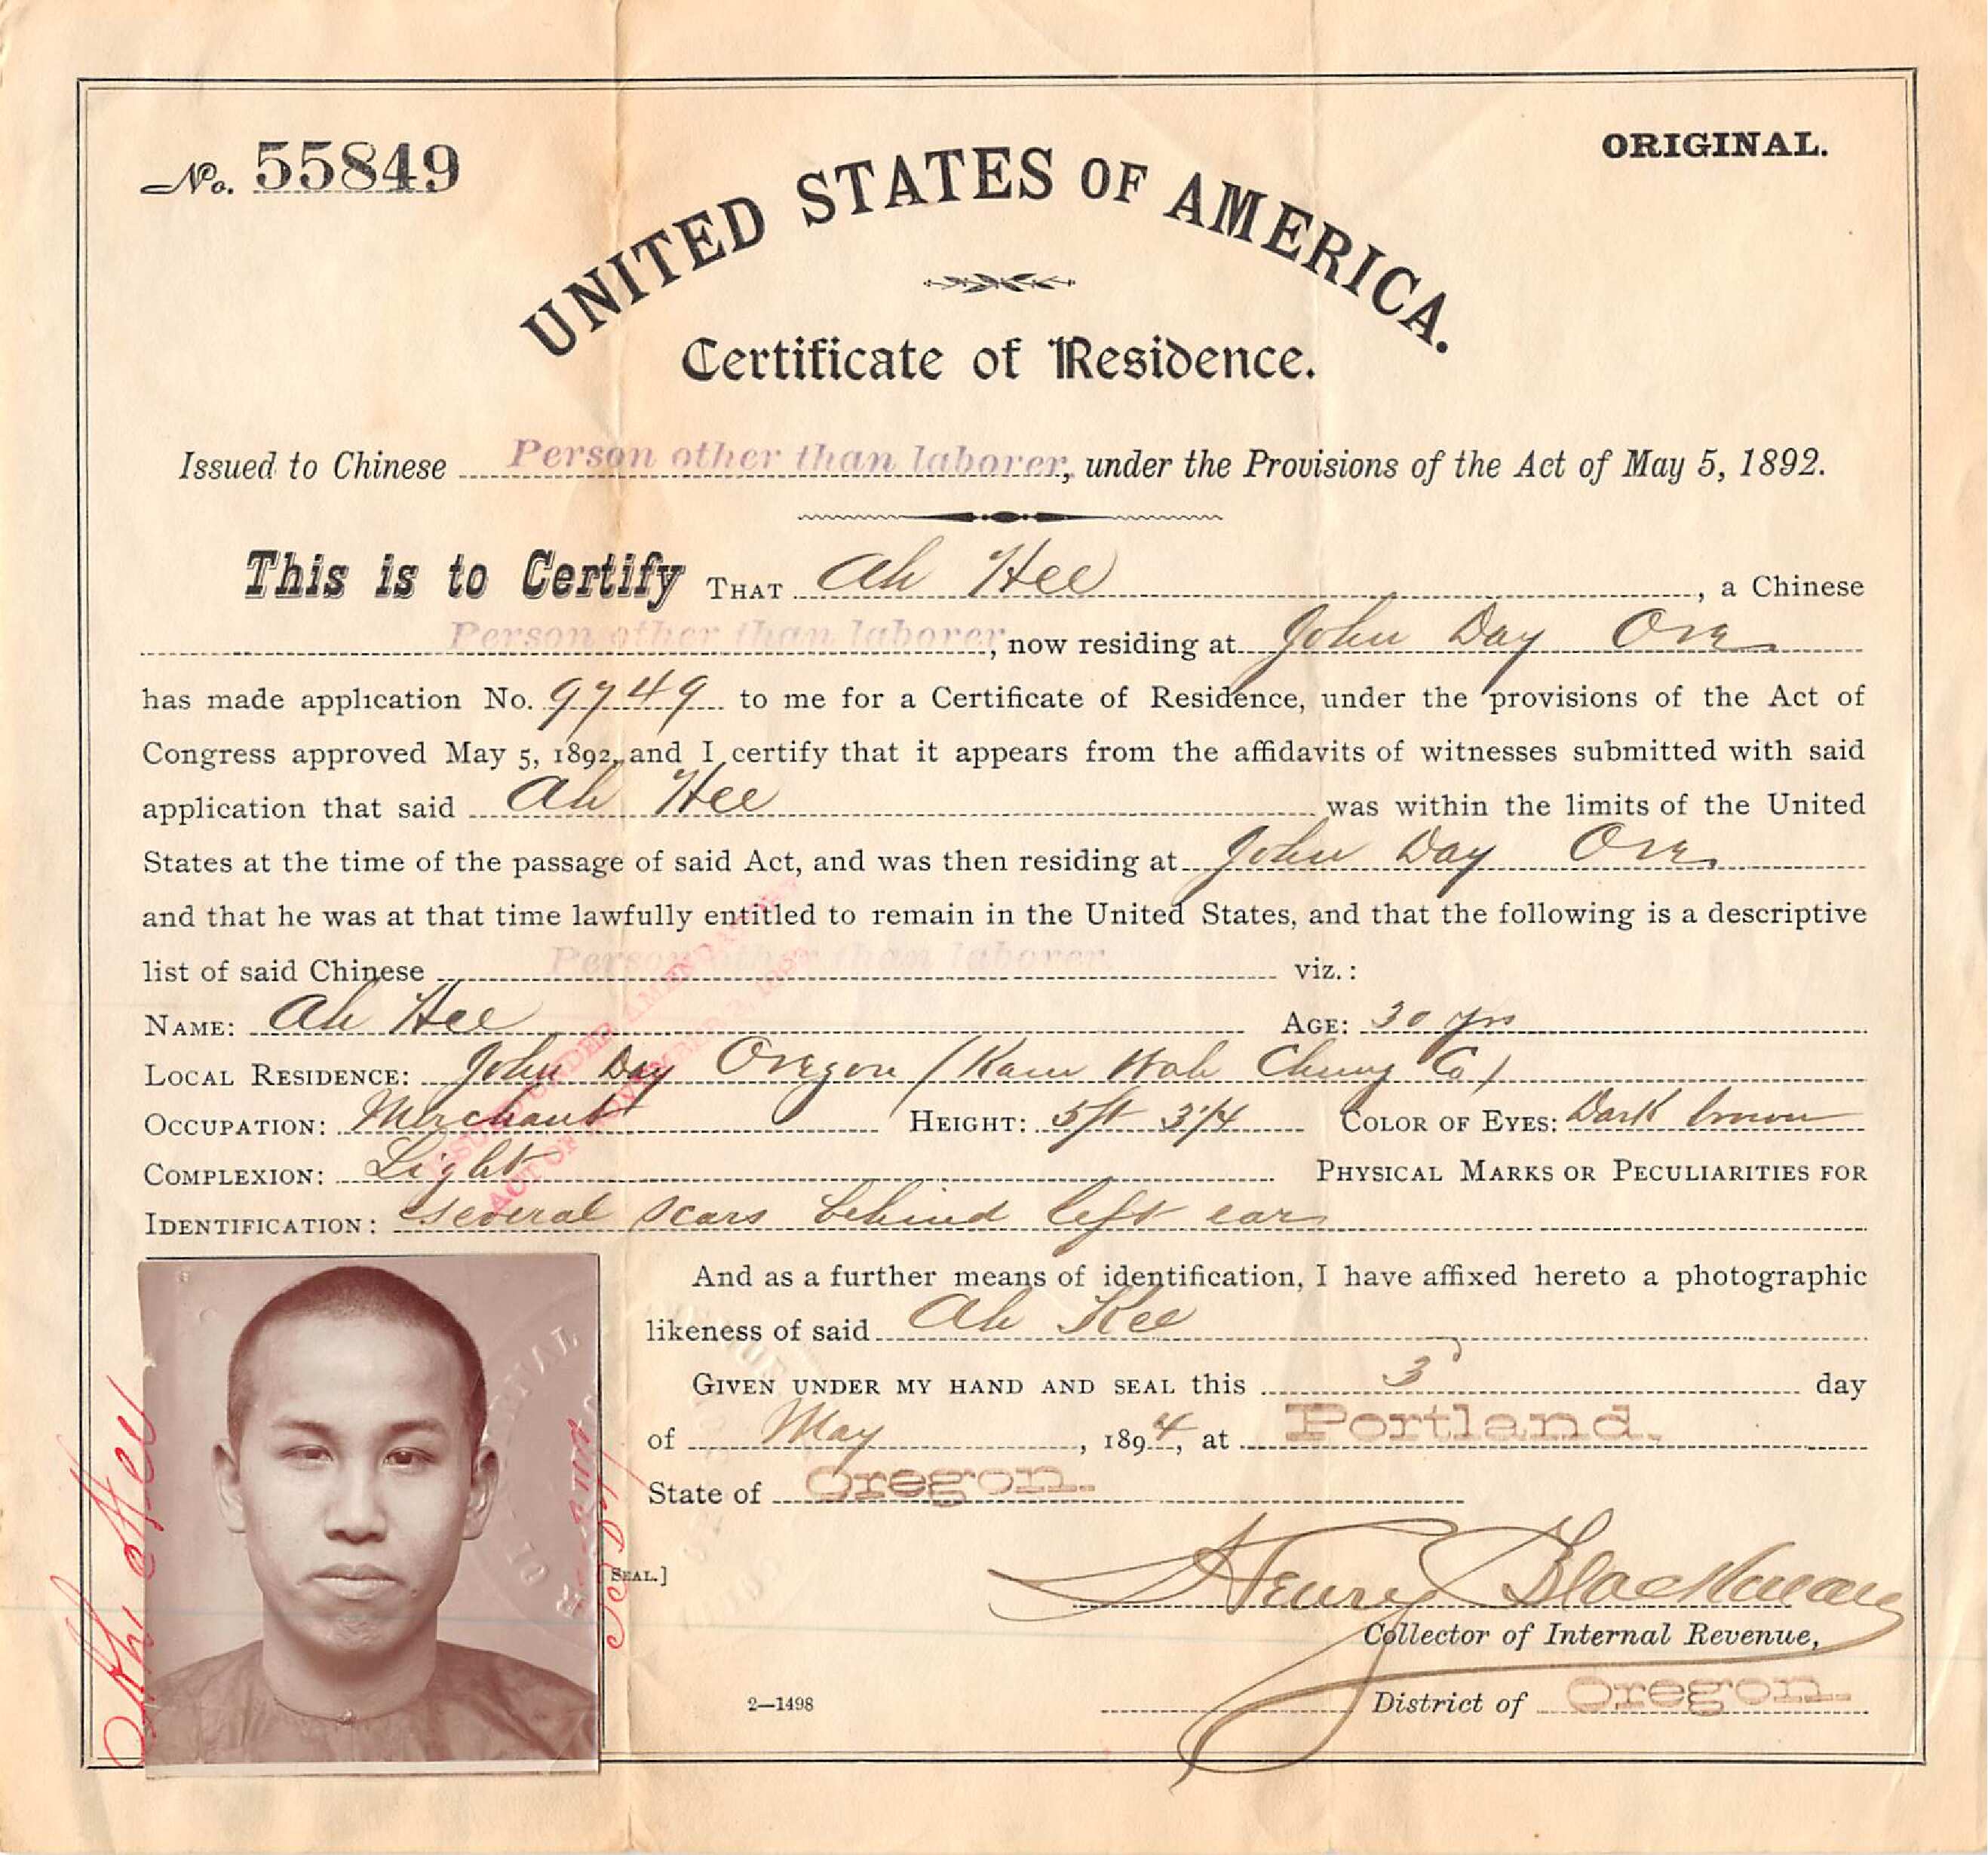 No. 55849
ORIGINAL.
UNITED STATES OF AMERICA.
Certificate of Residence.
Issued to Chinese Person other than laborer, under the Provisions of the Act of May 5, 1892.
This is to Certify THAT Ah Hee, a Chinese
Person other than laborer, now residing at John Day Ore
has made application No. 9749 to me for a Certificate of Residence, under the provisions of the Act of
Congress approved May 5, 1892, and I certify that it appears from the affidavits of witnesses submitted with said
application that said Ah Hee was within the limits of the United
States at the time of the passage of said Act, and was then residing at John Day Ore
and that he was at that time lawfully entitled to remain in the United States, and that the following is a descriptive
list of said Chinese Person other than laborer viz.:
NAME: Ah Hee AGE: 30 yrs
LOCAL RESIDENCE: John Day Oregon (Kam Wah Chung Co)
OCCUPATION: Merchant HEIGHT: 5ft 3 1/4 COLOR OF EYES: Dark brown
COMPLEXION: Light PHYSICAL MARKS OR PECULIARITIES FOR
IDENTIFICATION: several scars behind left ear
ISSUED UNDER AMENDATORY
ACT OF NOVEMBER 3, 1893
And as a further means of identification, I have affixed hereto a photographic
likeness of said Ah Hee
GIVEN UNDER MY HAND AND SEAL this 3 day
of May, 1894, at Portland.
State of Oregon.
[SEAL.]
Henry Blackman
Collector of Internal Revenue,
District of Oregon.
2—1498
Ah Hee